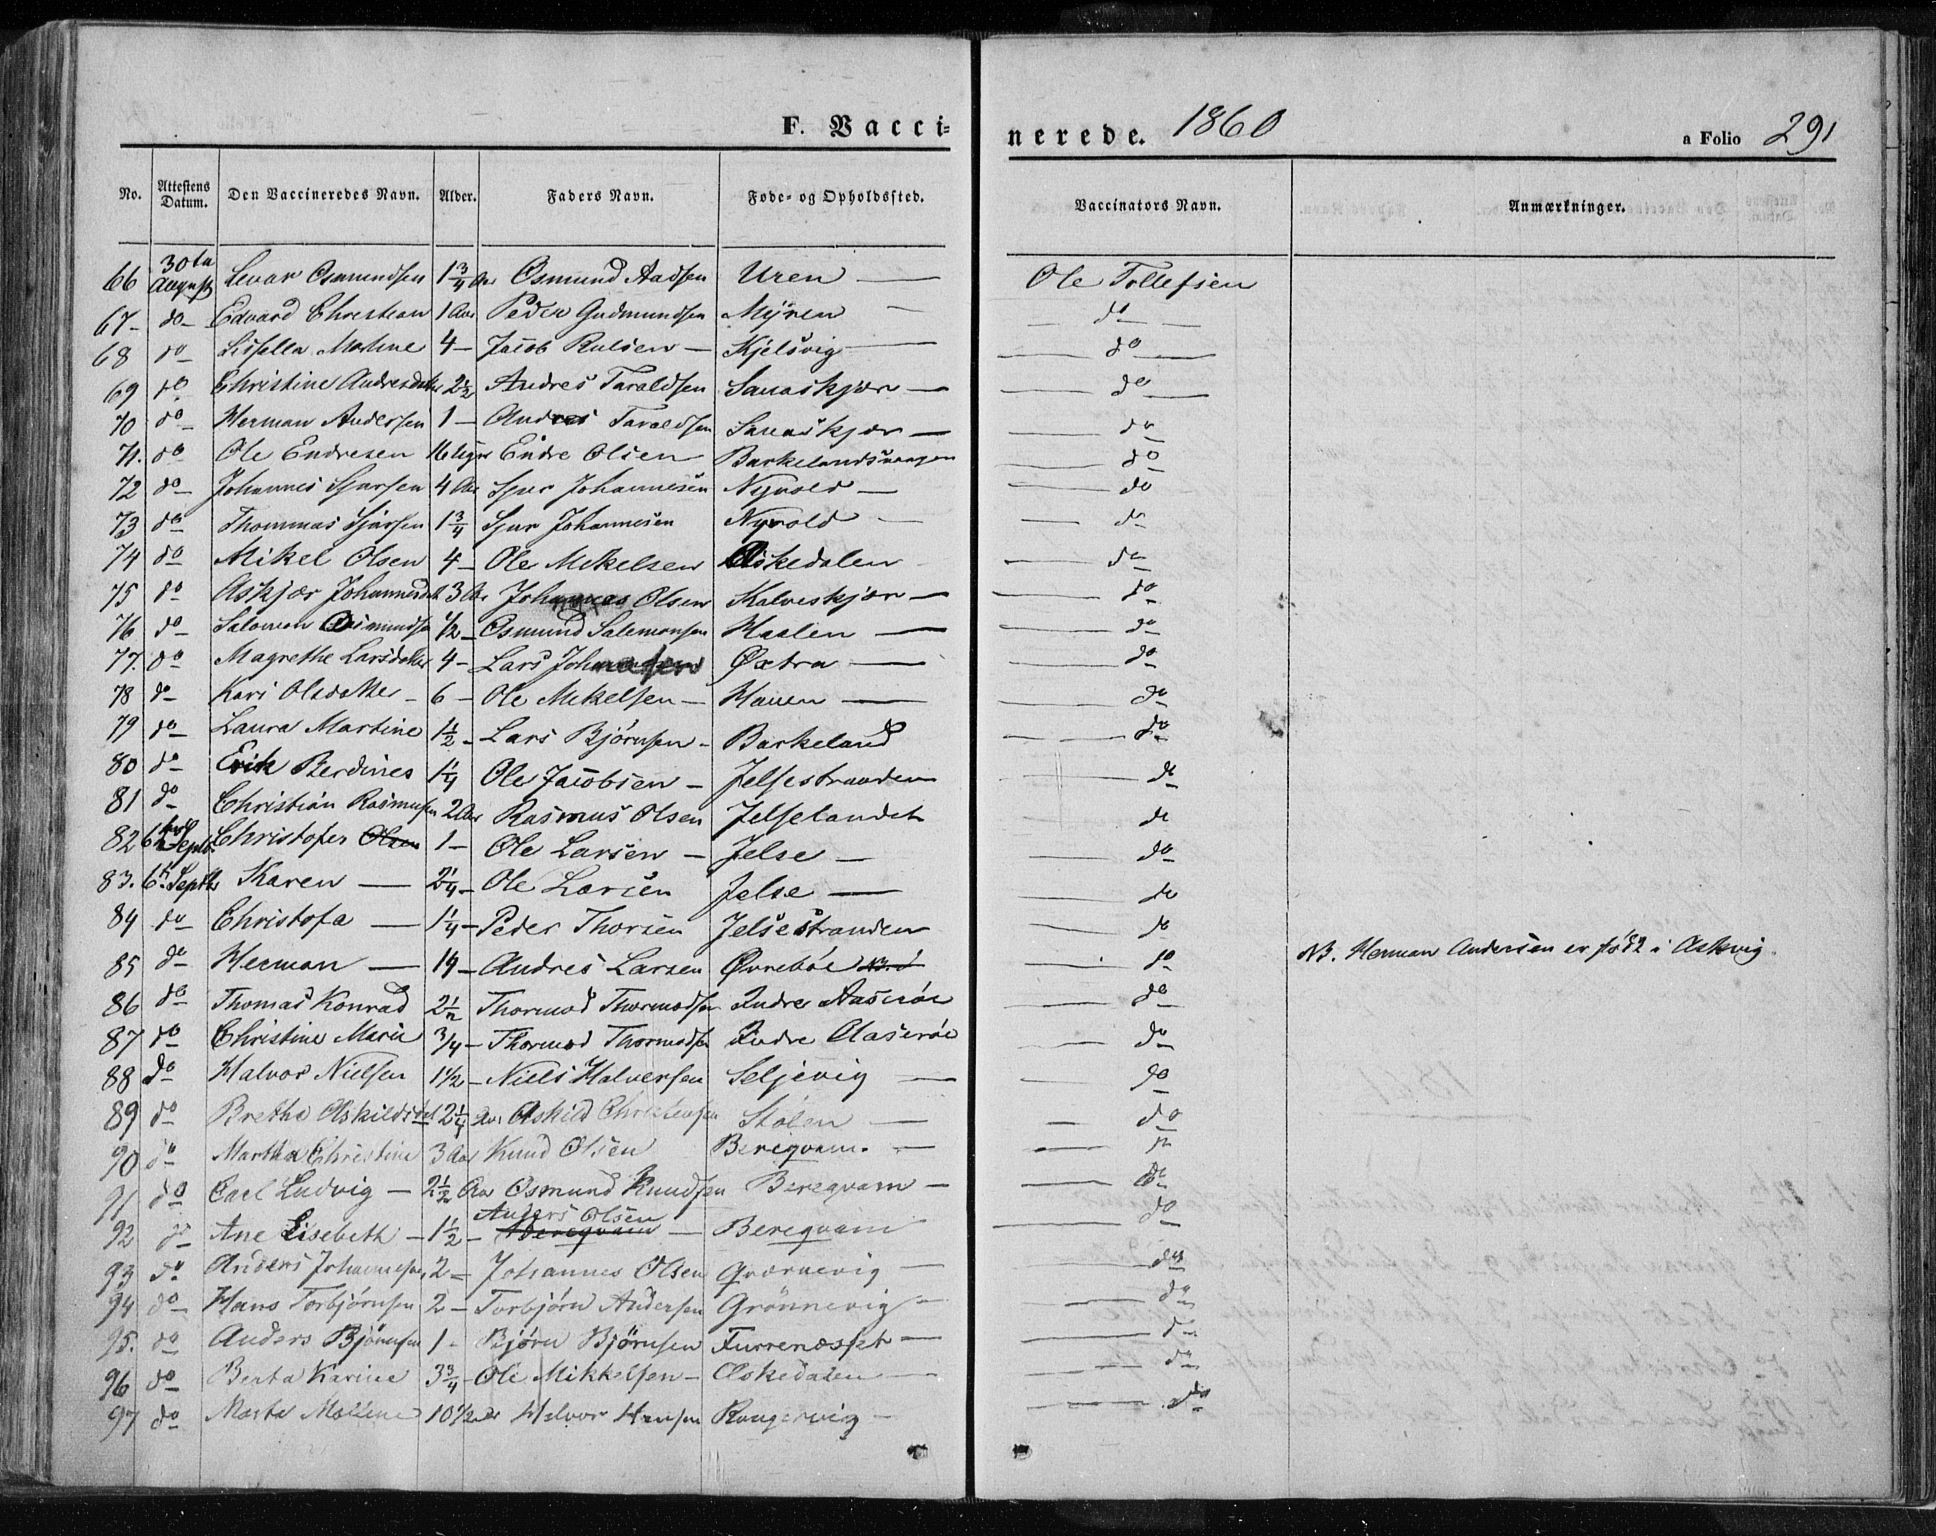 F. Vacci=
nerede. 1860
a Folio 291
No. Attestens Datum. Den Vaccineredes Navn. Alder. Faders Navn. Føde- og Opholdssted. Vaccinators Navn. Anmærkninger.
66 30te August Osmundsen 1 3/4 Aar Osmund Aadsen Uren — Ole Tollefsen
67 - do - Edvard Christian 1 Aar Peder Gudmundsen Myren — do
68 do 4 - Jacob Kjelsvig — do
69 do Christine Andresdatter 2 1/2 Andres Taraldsen Sanaskjær — do
70 do Herman Andersen 1 - Andres Taraldsen Sanaskjær — do
71. do Ole Endresen 16 Uger Endre Olsen Barkelandsvaagen do
72 do Johannes Sjursen 4 Aar Sjur Johannesen Nyvold — do
73 do Thommas Sjursen 1 3/4 Sjur Johannesen Nyvold — do
74 do Mikel Olsen 4 - Ole Mekelsen Askedalen do
75 do Askjær Johannesdatt 3 Aar Johannes Olsen Kalveskjær — do
76 do Salomon Osmundsen 1/2 - Osmund Salemonsen Haalen — do
77. do Magrethe Larsdatter 4 - Lars Johnnesen Øxtra — do
78 do Kari Olsdatter - 6 - Ole Mekelsen - Hauen — do
79 do Laura Martine 1 1/2 - Lars Bjørnsen - Barkeland do
80 do Erik Berdines 1 1/4 Ole Jacobsen - Jelsestranden do
81 do Christian Rasmusen 2 Aar Rasmus Olsen Jelselandet do
82 6te Septb. Christofer Olsen 1 - Ole Larsen - Jelse — do
83. 6te Septbr Karen — 2 1/4 - Ole Larsen Jelse — do
84 do Christofa — 1 1/4 - Peder Thorsen Jelsestranden do
85 do Herman — 14 - Andres Larsen Øvrebøe do NB. Herman Andersen er født i Askvig.
86 do Thomas Konrad 2 1/2 Thormod Thormodsen Indre Aaserøe do
87 do Christine Marie 3/4 - Thormod Thormodsen Indre Aaserøe do
88 do Halvor Nielsen 1 1/2 - Niels Halversen Seljevig — do
89 do Brethe Askildsdat 2 1/4 Aar Askild Christensen Stølen — do
90 do Martha Christine 3 Aar Knud Olsen Bereqvam. — do
91 do Carl Ludvig - 2 1/2 Aar Osmund Knudsen Bereqvam - do
92 do Ane Lisebeth - 1 1/2 - Anders Olsen Bereqvam — Bereqvam do
93 do Anders Johannesen 2 - Johannes Olsen Qværnevig — do
94 do Hans Torbjørnsen 2 - Torbjørn Andersen Grønnevig - do
95. do Anders Bjørnsen 1 - Bjørn Bjørnsen Furrenæsset — do
96 do Berta Karine 3 3/4 - Ole Mikkelsen - Askedalen — do
97 do Marta Mallene 10 1/2 Halvor Hansen Raugervig - do